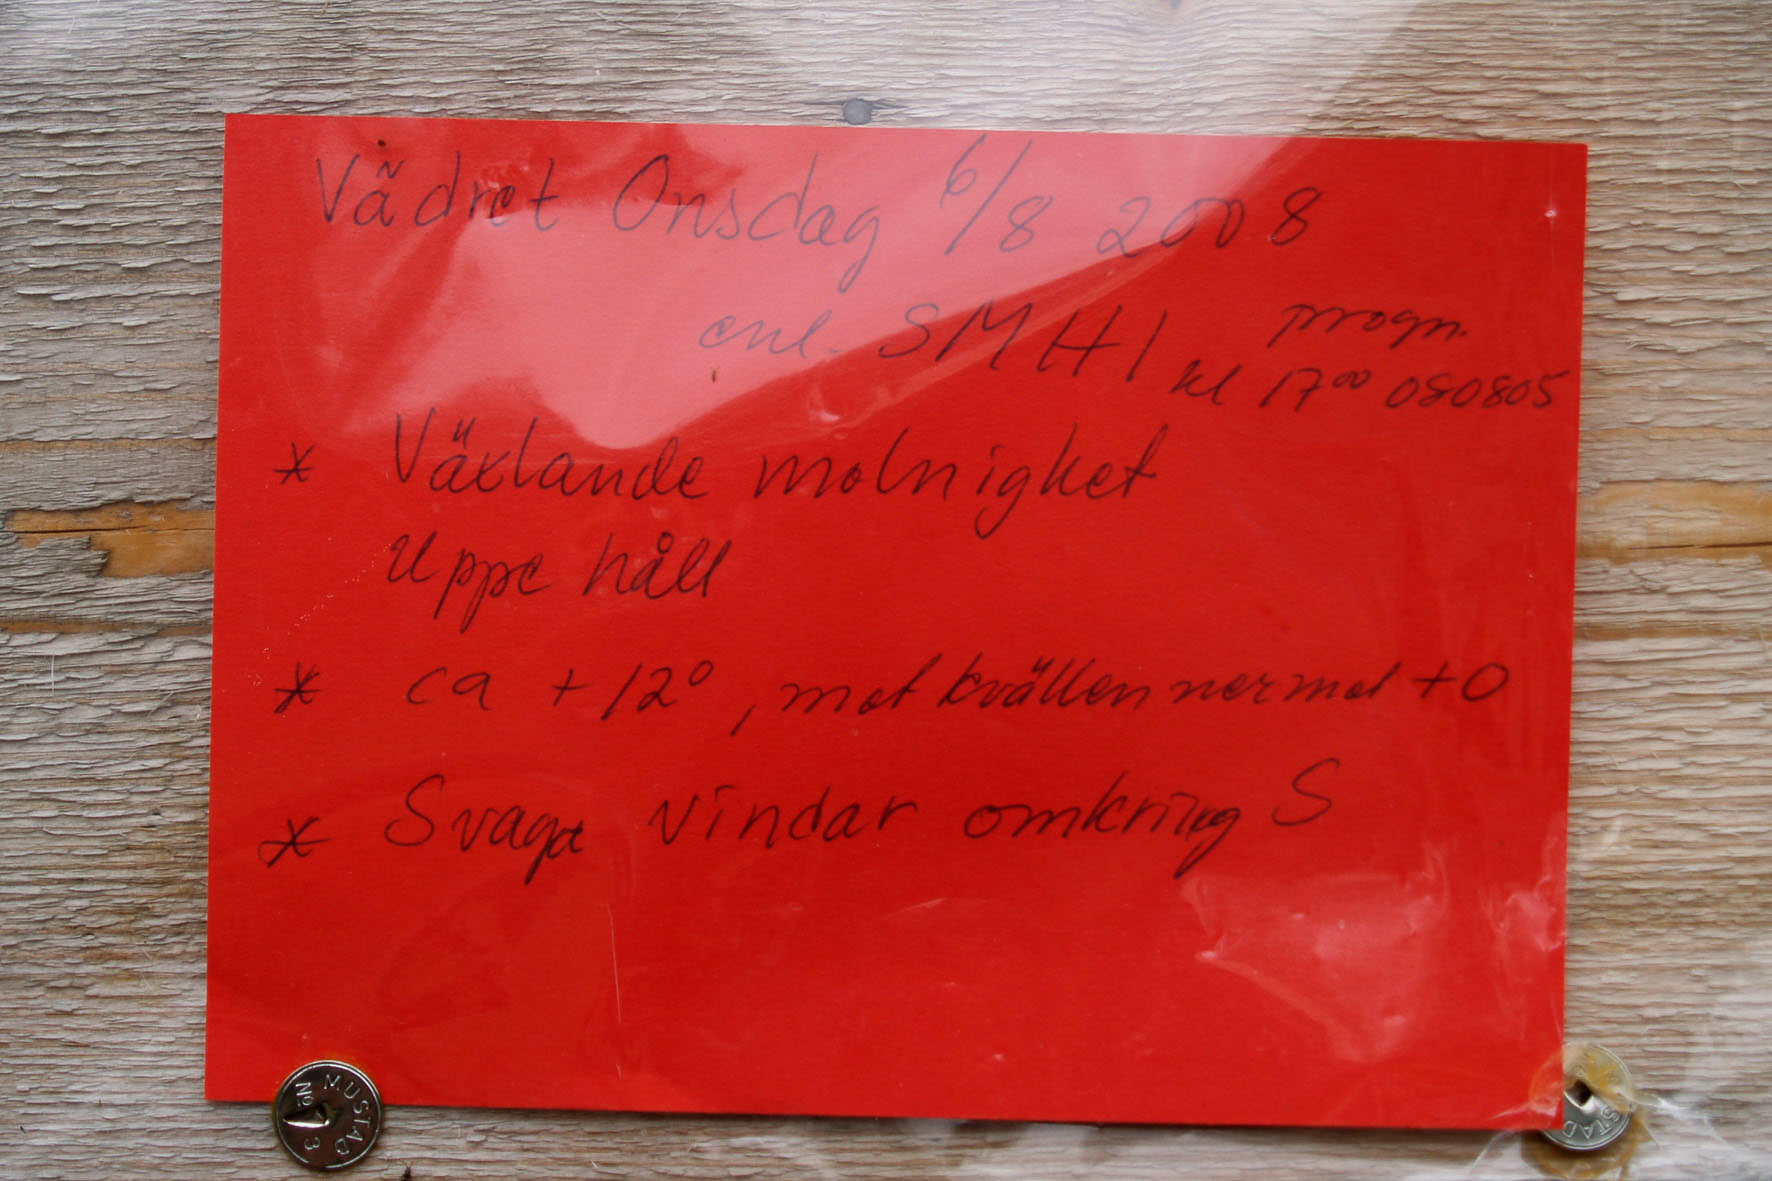 Vädret Onsdag 6/8 2008
enl. SMHI progn.
kl 17⁰⁰ 080805
* Växlande molnighet
Uppe håll
* ca +12°, mot kvällen nermot +0
* Svaga vindar omkring S
MUSTAD No 3
STAD